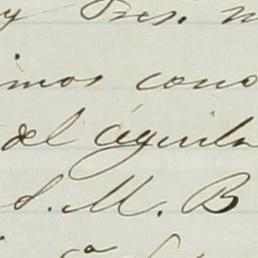 y Pres.
imos cono
del águila
S. M. B